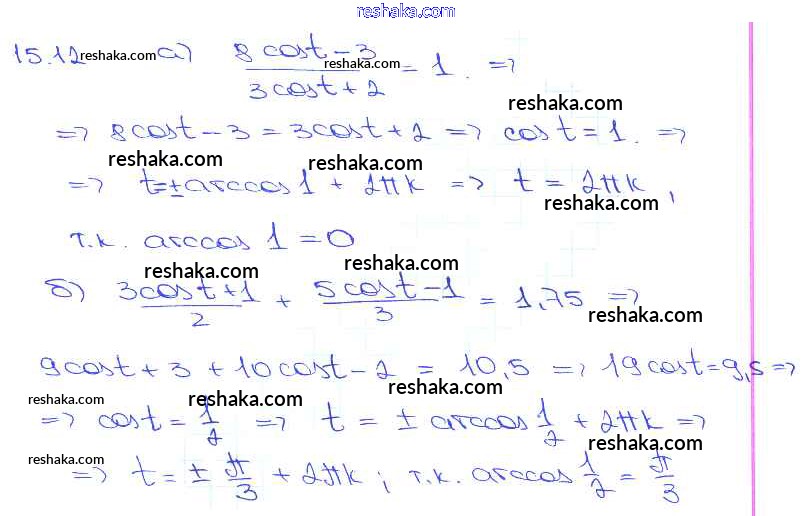 reshaka.com
15.12 reshaka.com а) (8cost - 3)/(3cost + 2) = 1. => reshaka.com
=> 8cost - 3 = 3cost + 2 => cost = 1. => reshaka.com
reshaka.com reshaka.com
=> t = ± arccos 1 + 2πk => t = 2πk,
reshaka.com
т.к. arccos 1 = 0
reshaka.com reshaka.com
б) (3cost + 1)/2 + (5cost - 1)/3 = 1,75 =>
reshaka.com
9cost + 3 + 10cost - 2 = 10,5 => 19cost = 9,5 =>
reshaka.com reshaka.com reshaka.com
=> cost = 1/2 => t = ± arccos 1/2 + 2πk =>
reshaka.com reshaka.com
=> t = ± π/3 + 2πk; т.к. arccos 1/2 = π/3
reshaka.com